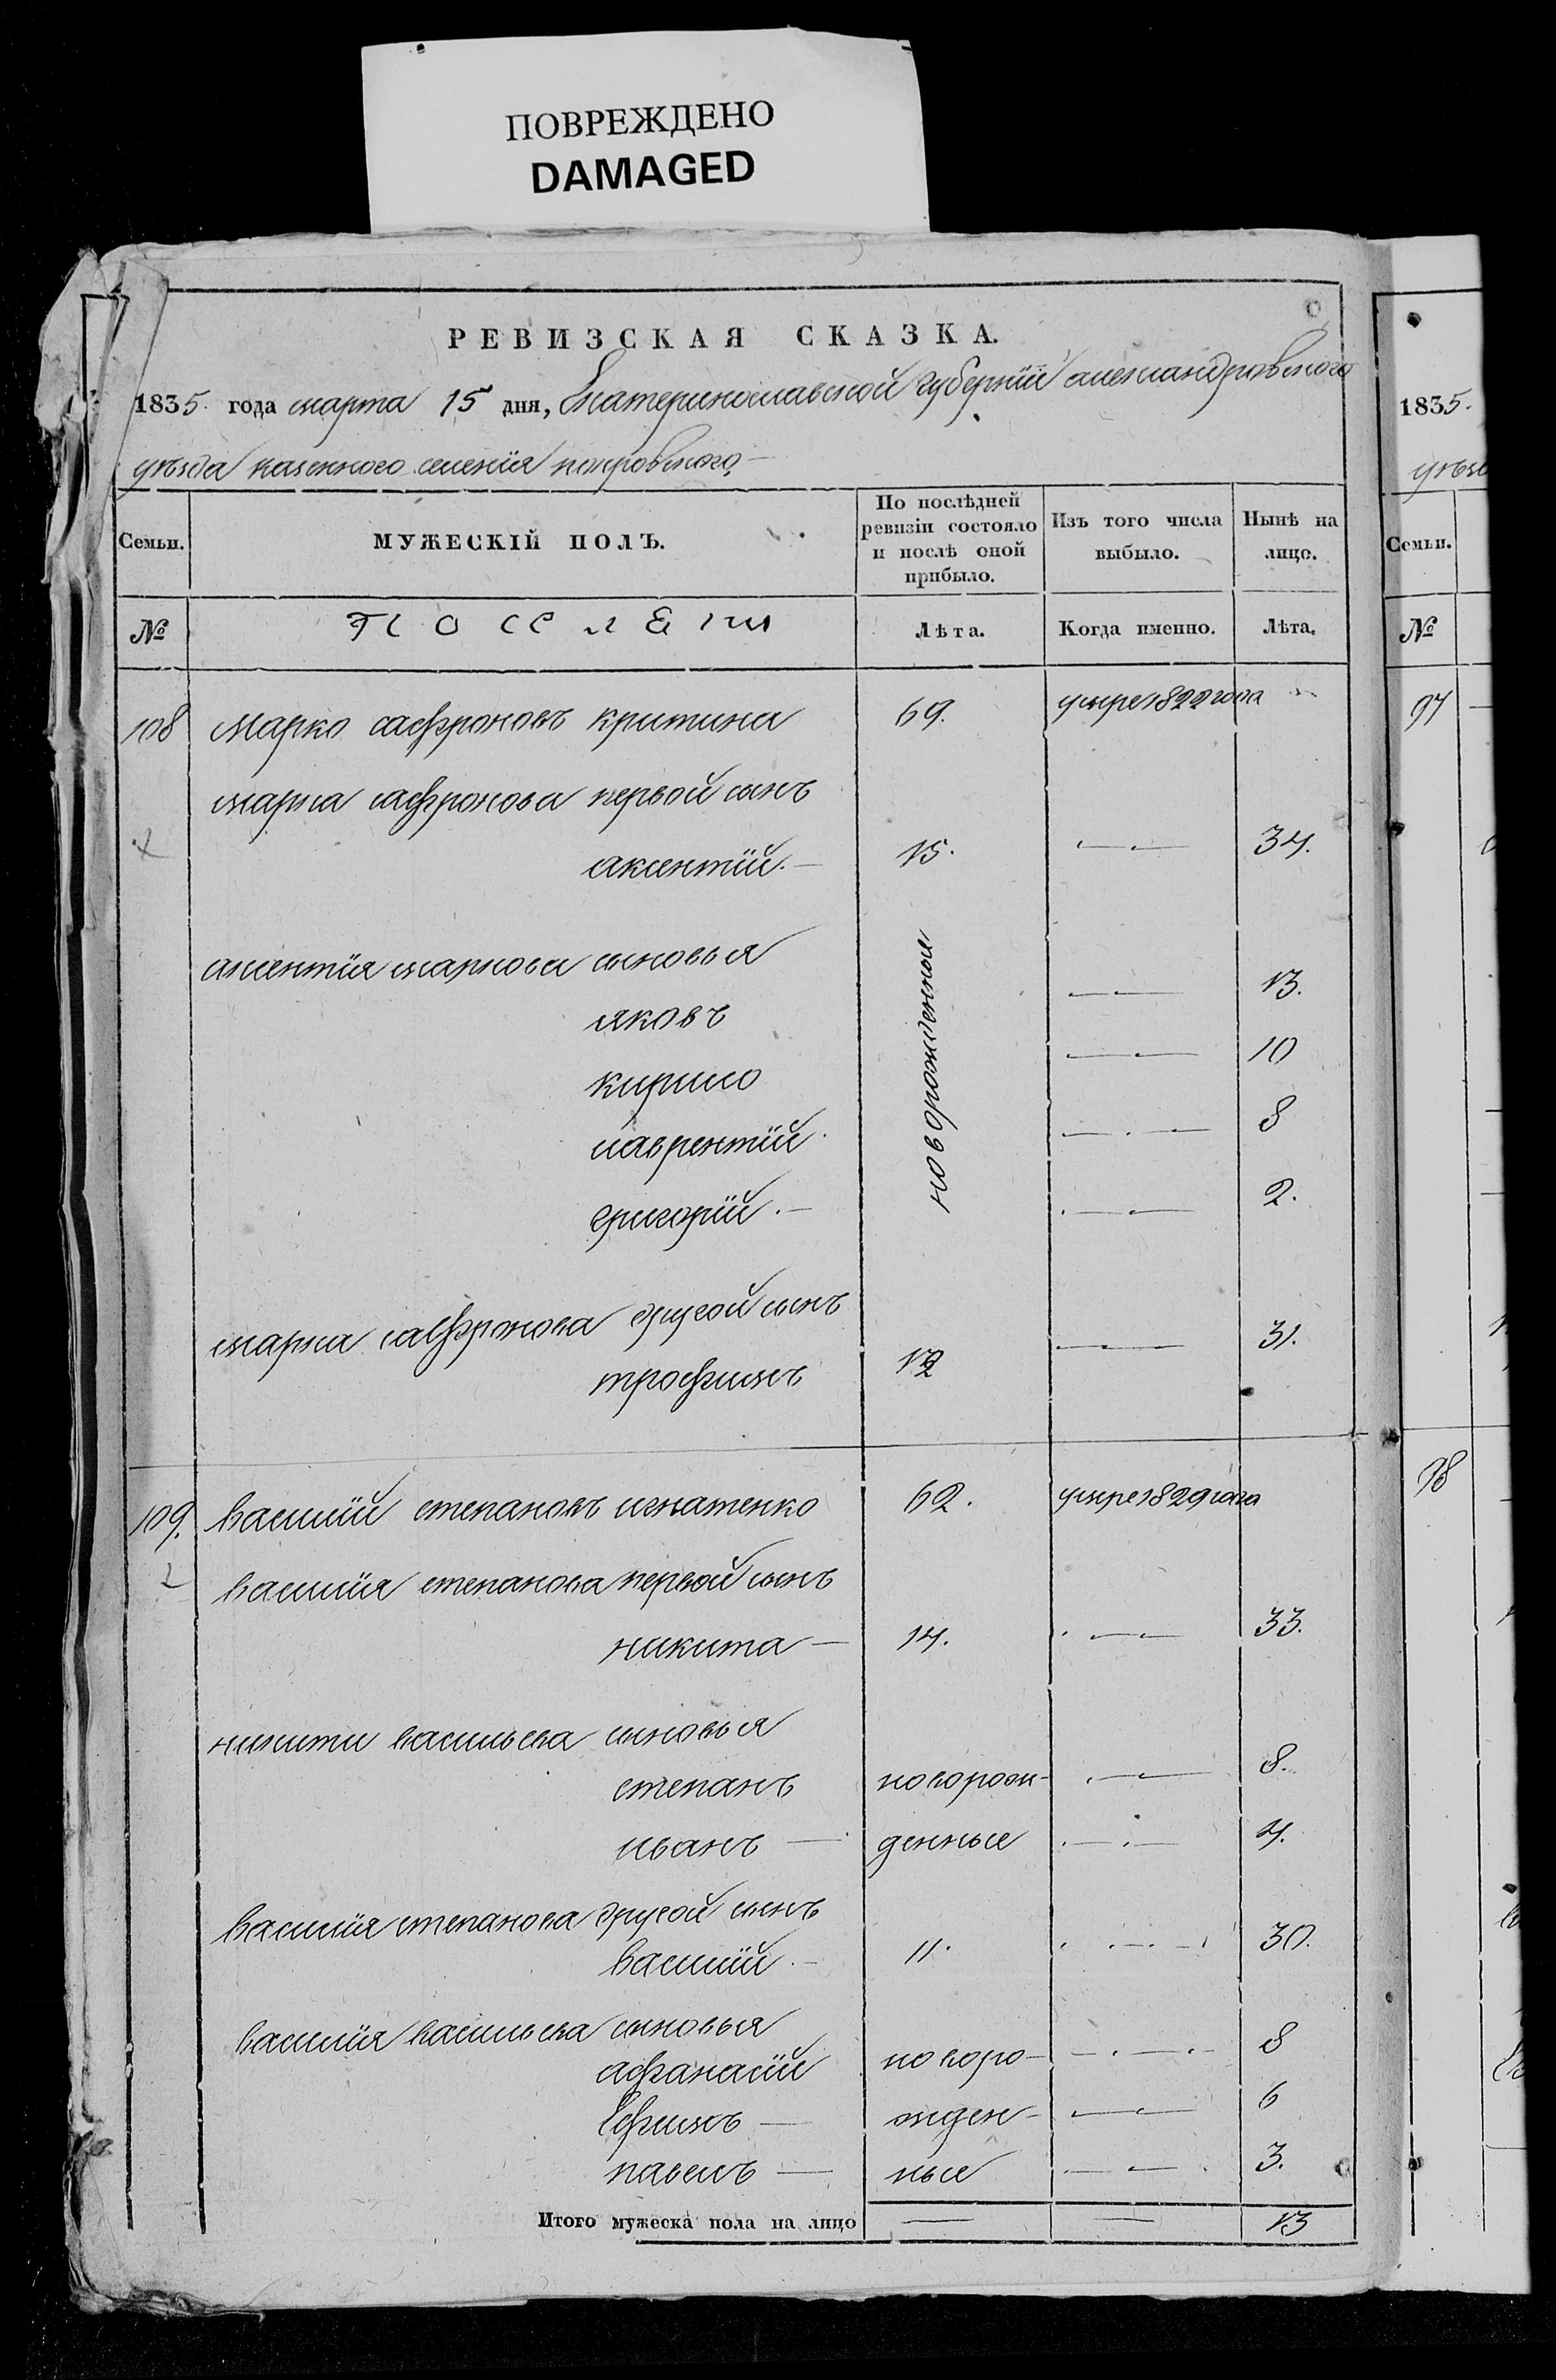 ПОВРЕЖДЕНО
DAMAGED
РЕВИЗСКАЯ СКАЗКА.
1835. года марта 15 дня, Екатеринославской губернїи александровского
уезда казенного селенїя покровского
Семьи. МУЖЕСКІЙ ПОЛЪ. По послѣдней ревизіи состояло и послѣ оной прибыло. Изъ того числа выбыло. Нынѣ на лицо.
№ Лѣта. Когда именно. Лѣта.
108 марко сафроновъ критина 69. умре 1822 года
марка сафронова первой сынъ
аксентїй. 15. 34.
аксентїя маркова сыновья
яковъ новорожденныя 13.
кирило 10
лаврентїй 8
григорїй. 2.
марка сафронова другой сынъ
трофимъ 12 31.
109. василїй степановъ игнатенко 62. умре 1829 года
василїя степанова первой сынъ
никита 14. 33.
никити васильева сыновья
степанъ новорож- 8.
иванъ денные 4.
василїя степанова другой сынъ
василїй 11. 30.
василїя васильева сыновья
афанасїй новоро- 8
Ефимъ жден- 6
павелъ ные 3.
Итого мужеска пола на лицо 13
1835.
уезд
Семьи.
№
97
98